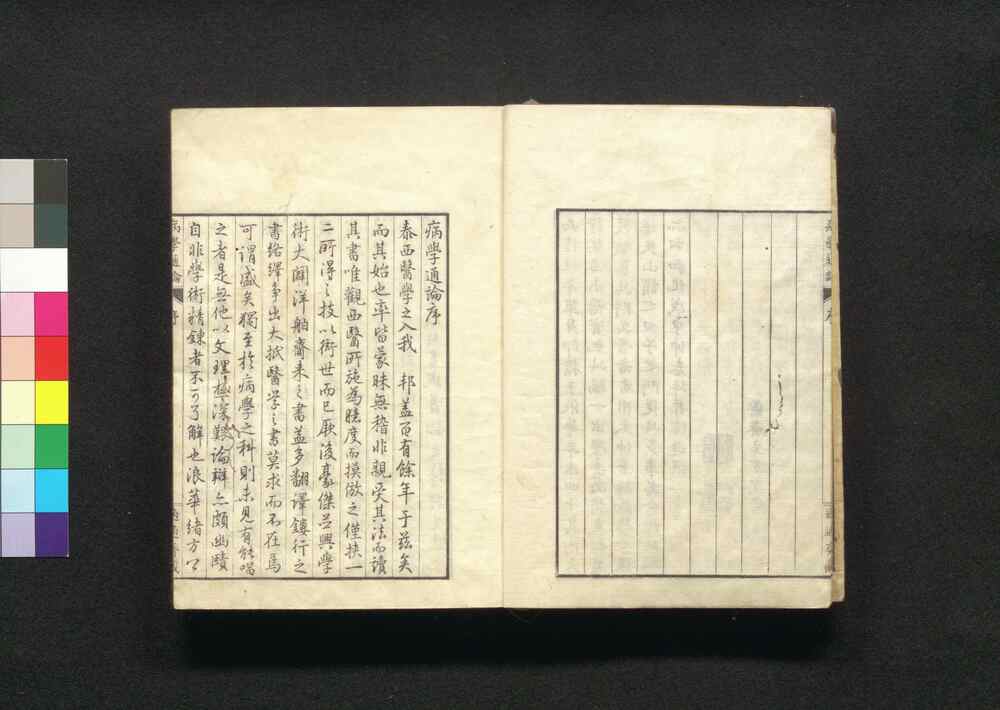 病學通論序
泰西醫學之入我　邦蓋百有餘年于茲矣
而其始也率皆蒙昧無稽非親受其法而讀
其書唯觀西醫所施為臆度而摸倣之僅挾一
二所得之技以衒世而已厥後豪傑並興學
術大闡洋舶齎来之書益多翻譯鏤行之
書絡繹爭出大抵醫学之書莫求而不在焉
可謂盛矣獨至於病學之科則未見有能唱
之者是無他以文理極深艱論辯亦頗幽賾
自非學術精鍊者不可了解也浪華緒方
病學通論
序